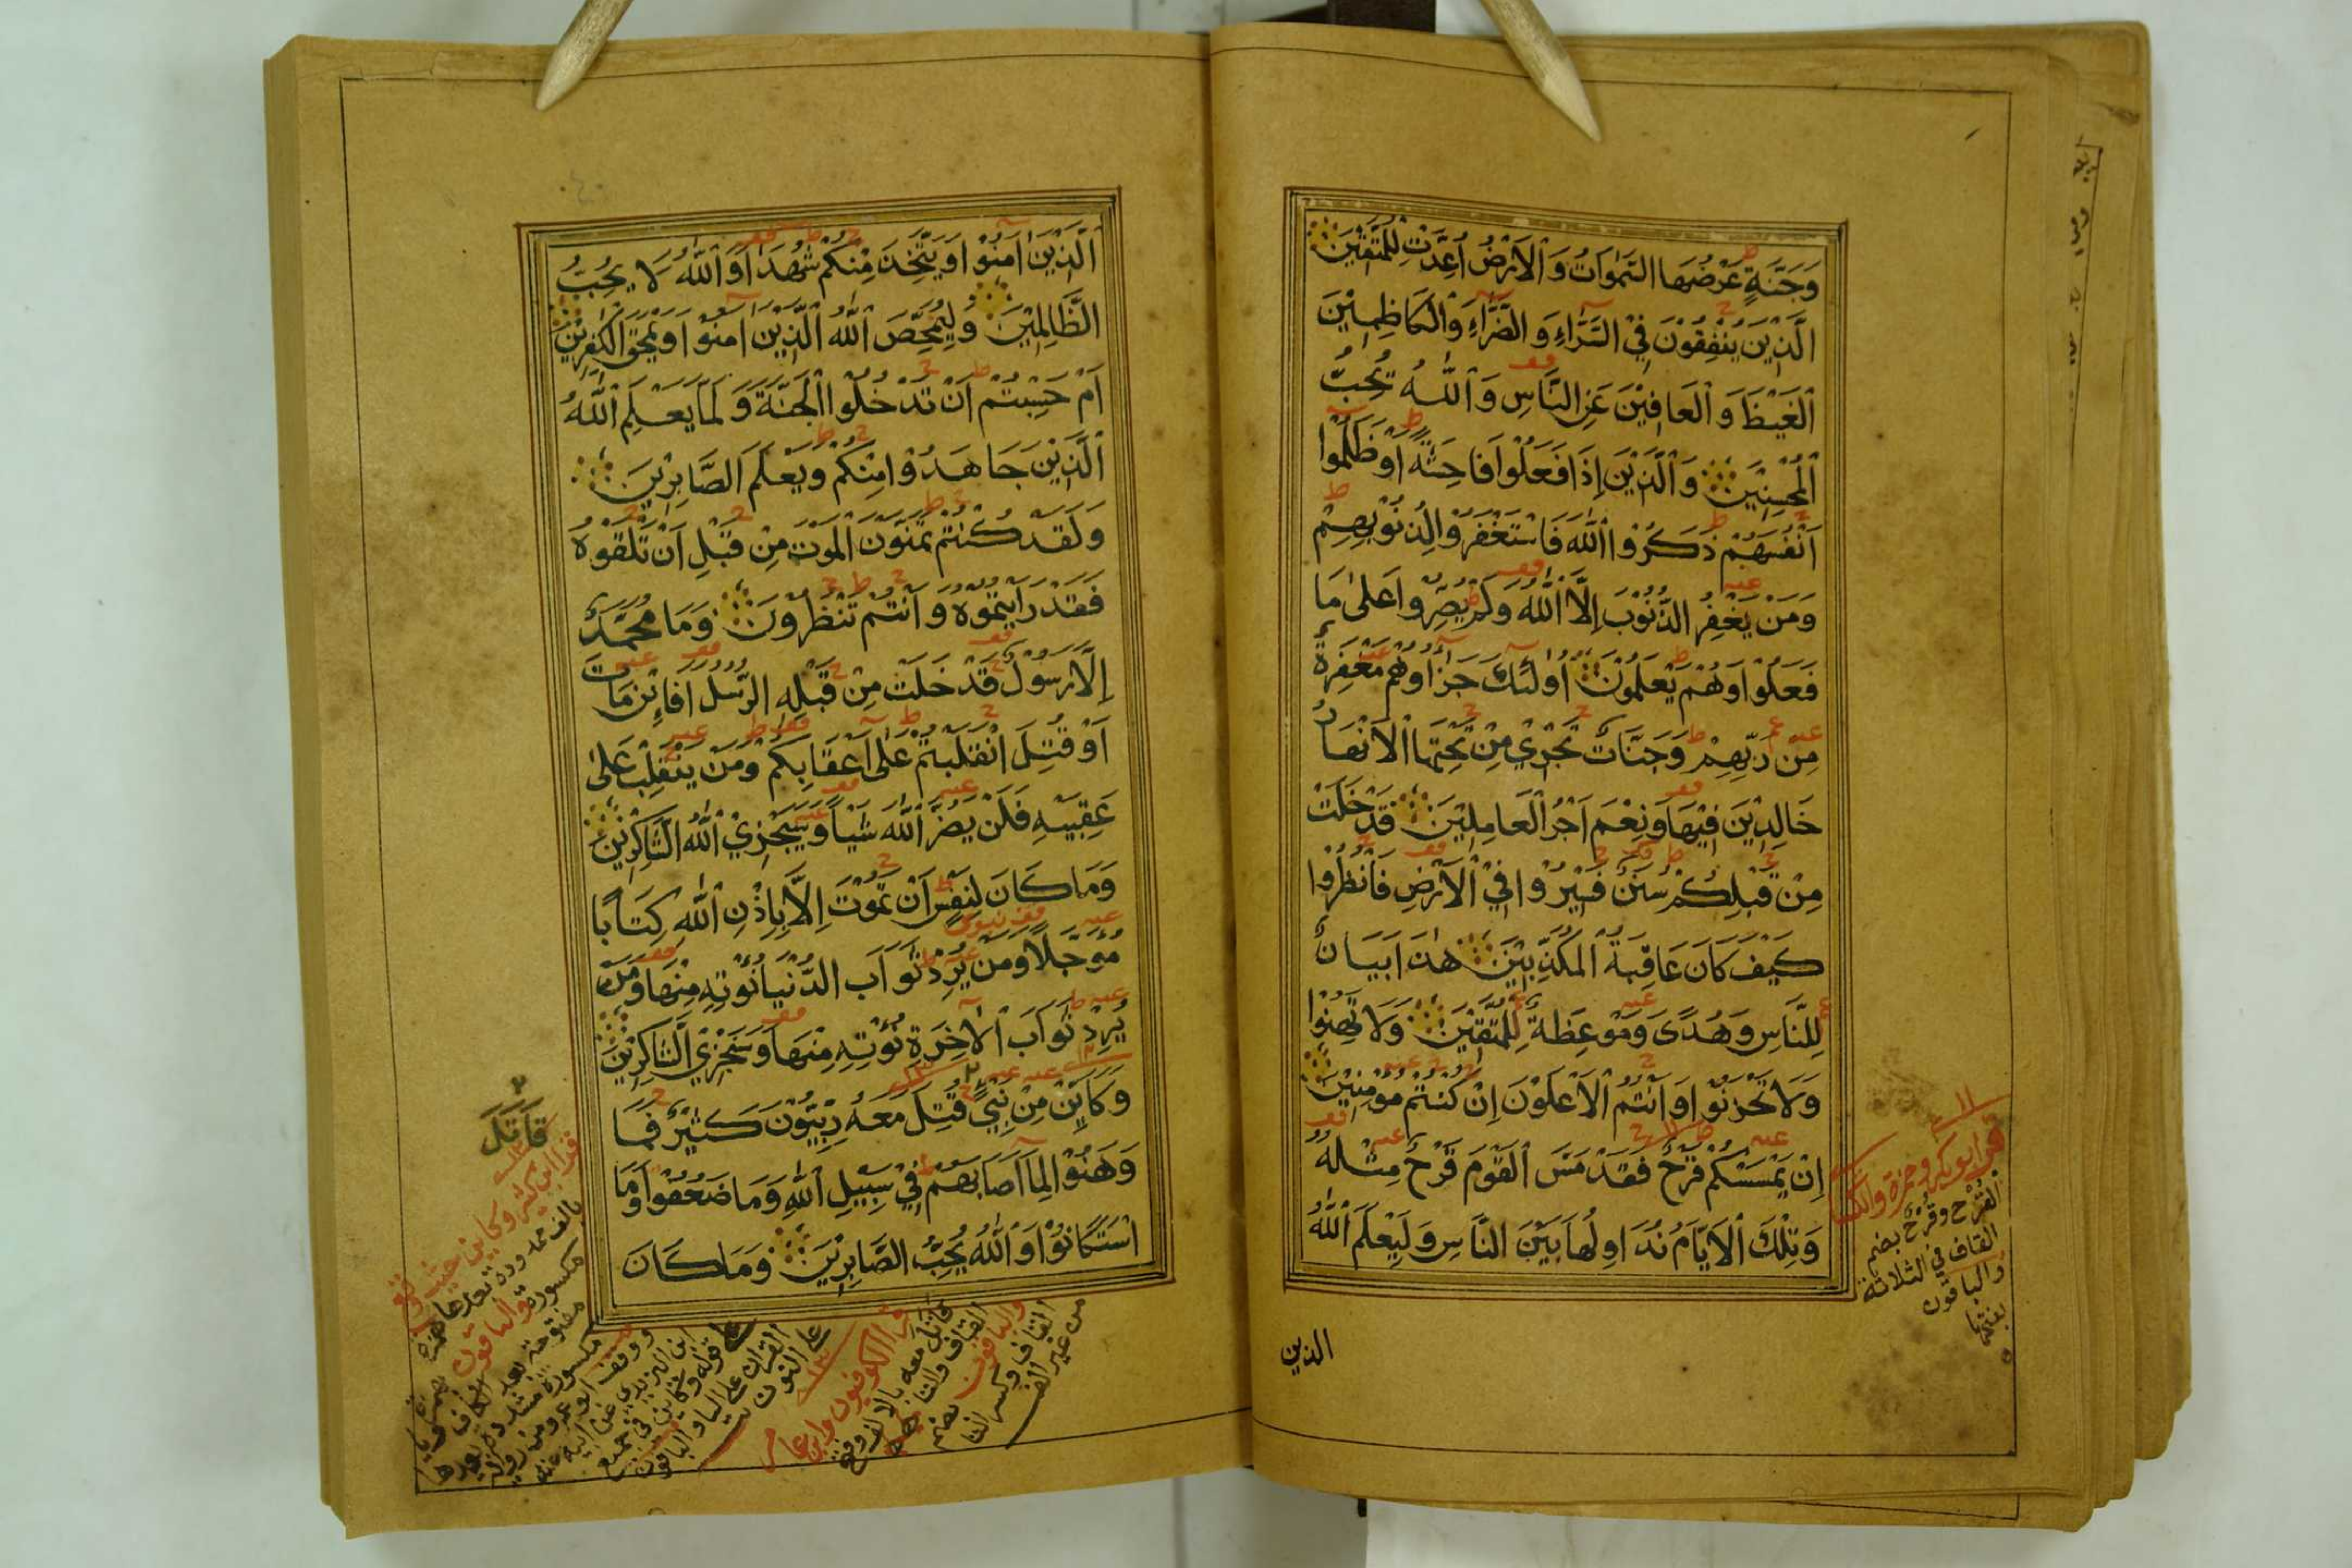 وَجَنَّةٍ عَرْضُهَا السَّمٰوَاتُ وَالْاَرْضُ اُعِدَّتْ لِلْمُتَّقِيْنَ
الَّذِيْنَ يُنْفِقُوْنَ فِيْ السَّرَّاءِ وَالضَّرَّاءِ وَالْكَاظِمِيْنَ
الْغَيْظَ وَالْعَافِيْنَ عَنِ النَّاسِ وَاللّٰهُ يُحِبُّ
الْمُحْسِنِيْنَ وَالَّذِيْنَ إِذَا فَعَلُوْا فَاحِشَةً اَوْ ظَلَمُوْا
اَنْفُسَهُمْ ذَكَرُوْا اللّٰهَ فَاسْتَغْفَرُوْا لِذُنُوْبِهِمْ
وَمَنْ يَغْفِرُ الذُّنُوْبَ إِلَّا اللّٰهُ وَلَمْ يُصِرُّوْا عَلٰى مَا
فَعَلُوْا وَهُمْ يَعْلَمُوْنَ اُولٰئِكَ جَزَاؤُهُمْ مَغْفِرَةٌ
مِنْ رَبِّهِمْ وَجَنَّاتٌ تَجْرِيْ مِنْ تَحْتِهَا الْاَنْهَارُ
خَالِدِيْنَ فِيْهَا وَنِعْمَ اَجْرُ الْعَامِلِيْنَ قَدْ خَلَتْ
مِنْ قَبْلِكُمْ سُنَنٌ فَسِيْرُوْا فِيْ الْاَرْضِ فَانْظُرُوْا
كَيْفَ كَانَ عَاقِبَةُ الْمُكَذِّبِيْنَ هٰذَا بَيَانٌ
لِلنَّاسِ وَهُدًى وَمَوْعِظَةٌ لِلْمُتَّقِيْنَ وَلَا تَهِنُوْا
وَلَا تَحْزَنُوْا وَاَنْتُمُ الْاَعْلَوْنَ اِنْ كُنْتُمْ مُؤْمِنِيْنَ
اِنْ يَمْسَسْكُمْ قَرْحٌ فَقَدْ مَسَّ الْقَوْمَ قَرْحٌ مِثْلُهُ
وَتِلْكَ الْاَيَّامُ نُدَاوِلُهَا بَيْنَ النَّاسِ وَلِيَعْلَمَ اللّٰهُ
الذين
ابوبكر وحمزة والك
القُرْح وقُرْحٌ بضم
القاف في الثلاثة
والباقون
بفتحها
الَّذِيْنَ اٰمَنُوْا وَيَتَّخِذَ مِنْكُمْ شُهَدَاءَ وَاللّٰهُ لَا يُحِبُّ
الظَّالِمِيْنَ وَلِيُمَحِّصَ اللّٰهُ الَّذِيْنَ اٰمَنُوْا وَيَمْحَقَ الْكٰفِرِيْنَ
اَمْ حَسِبْتُمْ اَنْ تَدْخُلُوْا الْجَنَّةَ وَلَمَّا يَعْلَمِ اللّٰهُ
الَّذِيْنَ جَاهَدُوْا مِنْكُمْ وَيَعْلَمَ الصَّابِرِيْنَ
وَلَقَدْ كُنْتُمْ تَمَنَّوْنَ الْمَوْتَ مِنْ قَبْلِ اَنْ تَلْقَوْهُ
فَقَدْ رَاَيْتُمُوْهُ وَاَنْتُمْ تَنْظُرُوْنَ وَمَا مُحَمَّدٌ
اِلَّا رَسُوْلٌ قَدْ خَلَتْ مِنْ قَبْلِهِ الرُّسُلُ اَفَاِئِنْ مَاتَ
اَوْ قُتِلَ انْقَلَبْتُمْ عَلٰى اَعْقَابِكُمْ وَمَنْ يَنْقَلِبْ عَلٰى
عَقِبَيْهِ فَلَنْ يَضُرَّ اللّٰهَ شَيْاً وَسَيَجْزِيْ اللّٰهُ الشَّاكِرِيْنَ
وَمَا كَانَ لِنَفْسٍ اَنْ تَمُوْتَ اِلَّا بِاِذْنِ اللّٰهِ كِتَابًا
مُؤَجَّلًا وَمَنْ يُرِدْ ثَوَابَ الدُّنْيَا نُؤْتِهِ مِنْهَا وَمَنْ
يُرِدْ ثَوَابَ الْاٰخِرَةِ نُؤْتِهِ مِنْهَا وَسَنَجْزِي الشَّاكِرِيْنَ
وَكَاَيِّنْ مِنْ نَبِيٍّ قُتِلَ مَعَهُ رِبِّيُّوْنَ كَثِيْرٌ فَمَا
وَهَنُوْا لِمَا اَصَابَهُمْ فِيْ سَبِيْلِ اللّٰهِ وَمَا ضَعُفُوْا وَمَا
اسْتَكَانُوْا وَاللّٰهُ يُحِبُّ الصَّابِرِيْنَ وَمَا كَانَ
قَاتَلَ
قرا ابن كثير وكاين حيث وقع
بالف ممدودة بعدها همزة
مكسورة والباقون بهمزة
مفتوحة بعد الكاف وياء
مكسورة مشددة بعدها
الكوفيون وابن عامر
قاتل معه بالالف وفتح
القاف والتا
والباقون بضم
القاف وكسر التا
من غير الف